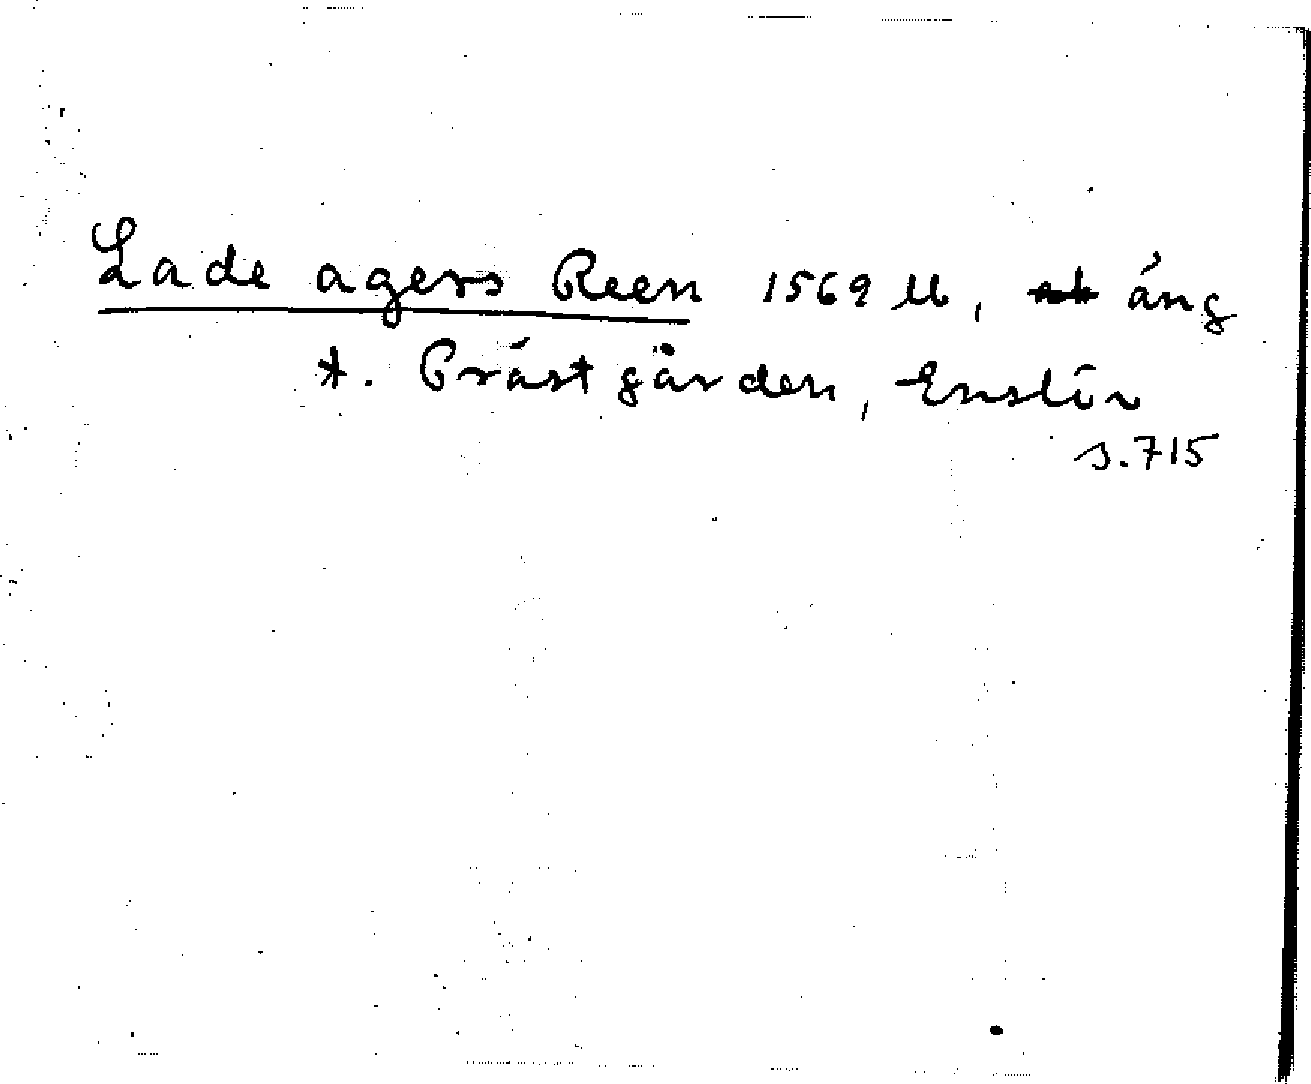 Lade agers Reen 1569 Ll, äng
t. Prästgården, Enslöv
s. 715